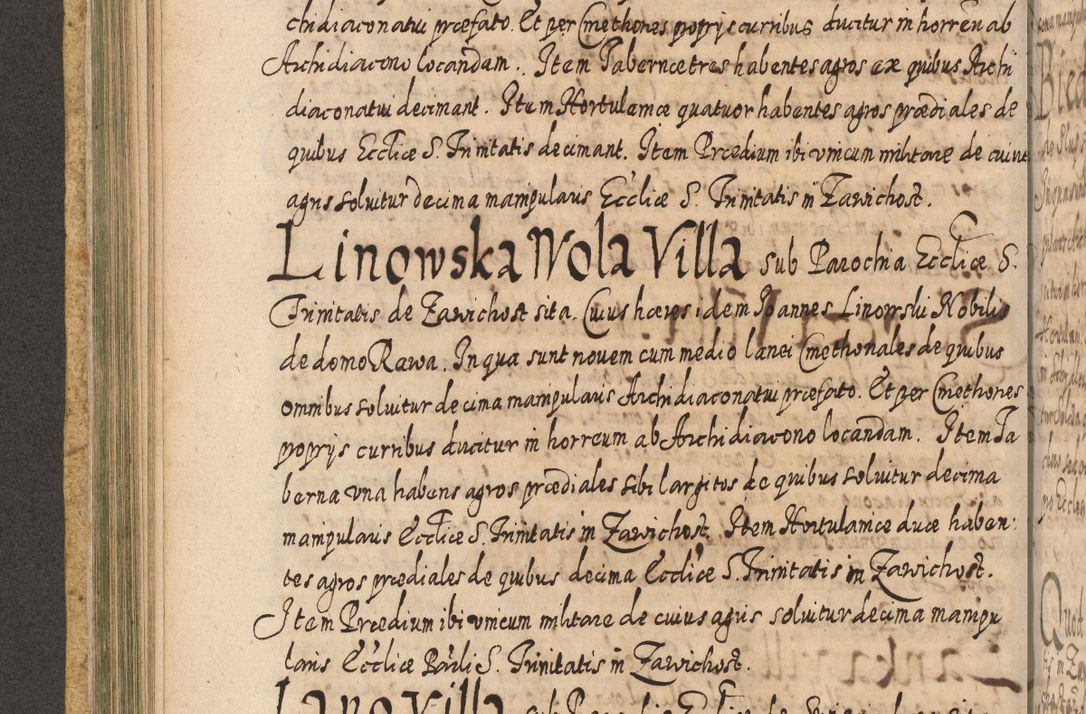 chidiaconatui præfato. Et per Cmethones proprijs curribus ducitur in horreu ab
Archidiacono locandam. Item Tabernæ tres habentes agros ex quibus Archi
diaconatui decimant. Item Hortulaniæ quatuor habentes agros prædiales de
quibus Ecclîæ S. Trinitatis decimant. Item Prædium ibi vnicum militare de cuius
agris soluitur decima manipularis Ecclîæ S. Trinitatis in Zawichost.
Linowska Wola Villa sub Parochia Ecclîæ S.
Trinitatis de Zawichost sita. Cuius hæres idem Joannes Linowski Nobilis
de domo Rawa. In qua sunt nouem cum medio lanei Cmethonales de quibus
omnibus soluitur decima manipularis Archidiaconatui præfato. Et per Cmethones
proprijs curribus ducitur in horreum ab Archidiacono locandam. Item Ta
berna vna habens agros prædiales sibi largitos de quibus soluitur decima
manipularis Ecclîæ S. Trinitatis in Zawichost. Item Hortulaniæ duæ haben:
tes agros prædiales de quibus decima Ecclîæ S. Trinitatis in Zawichost.
Item Prædium ibi vnicum militare de cuius agris soluitur decima manipu
laris Ecclîæ Parli S. Trinitatis in Zawichost.
Villa sub